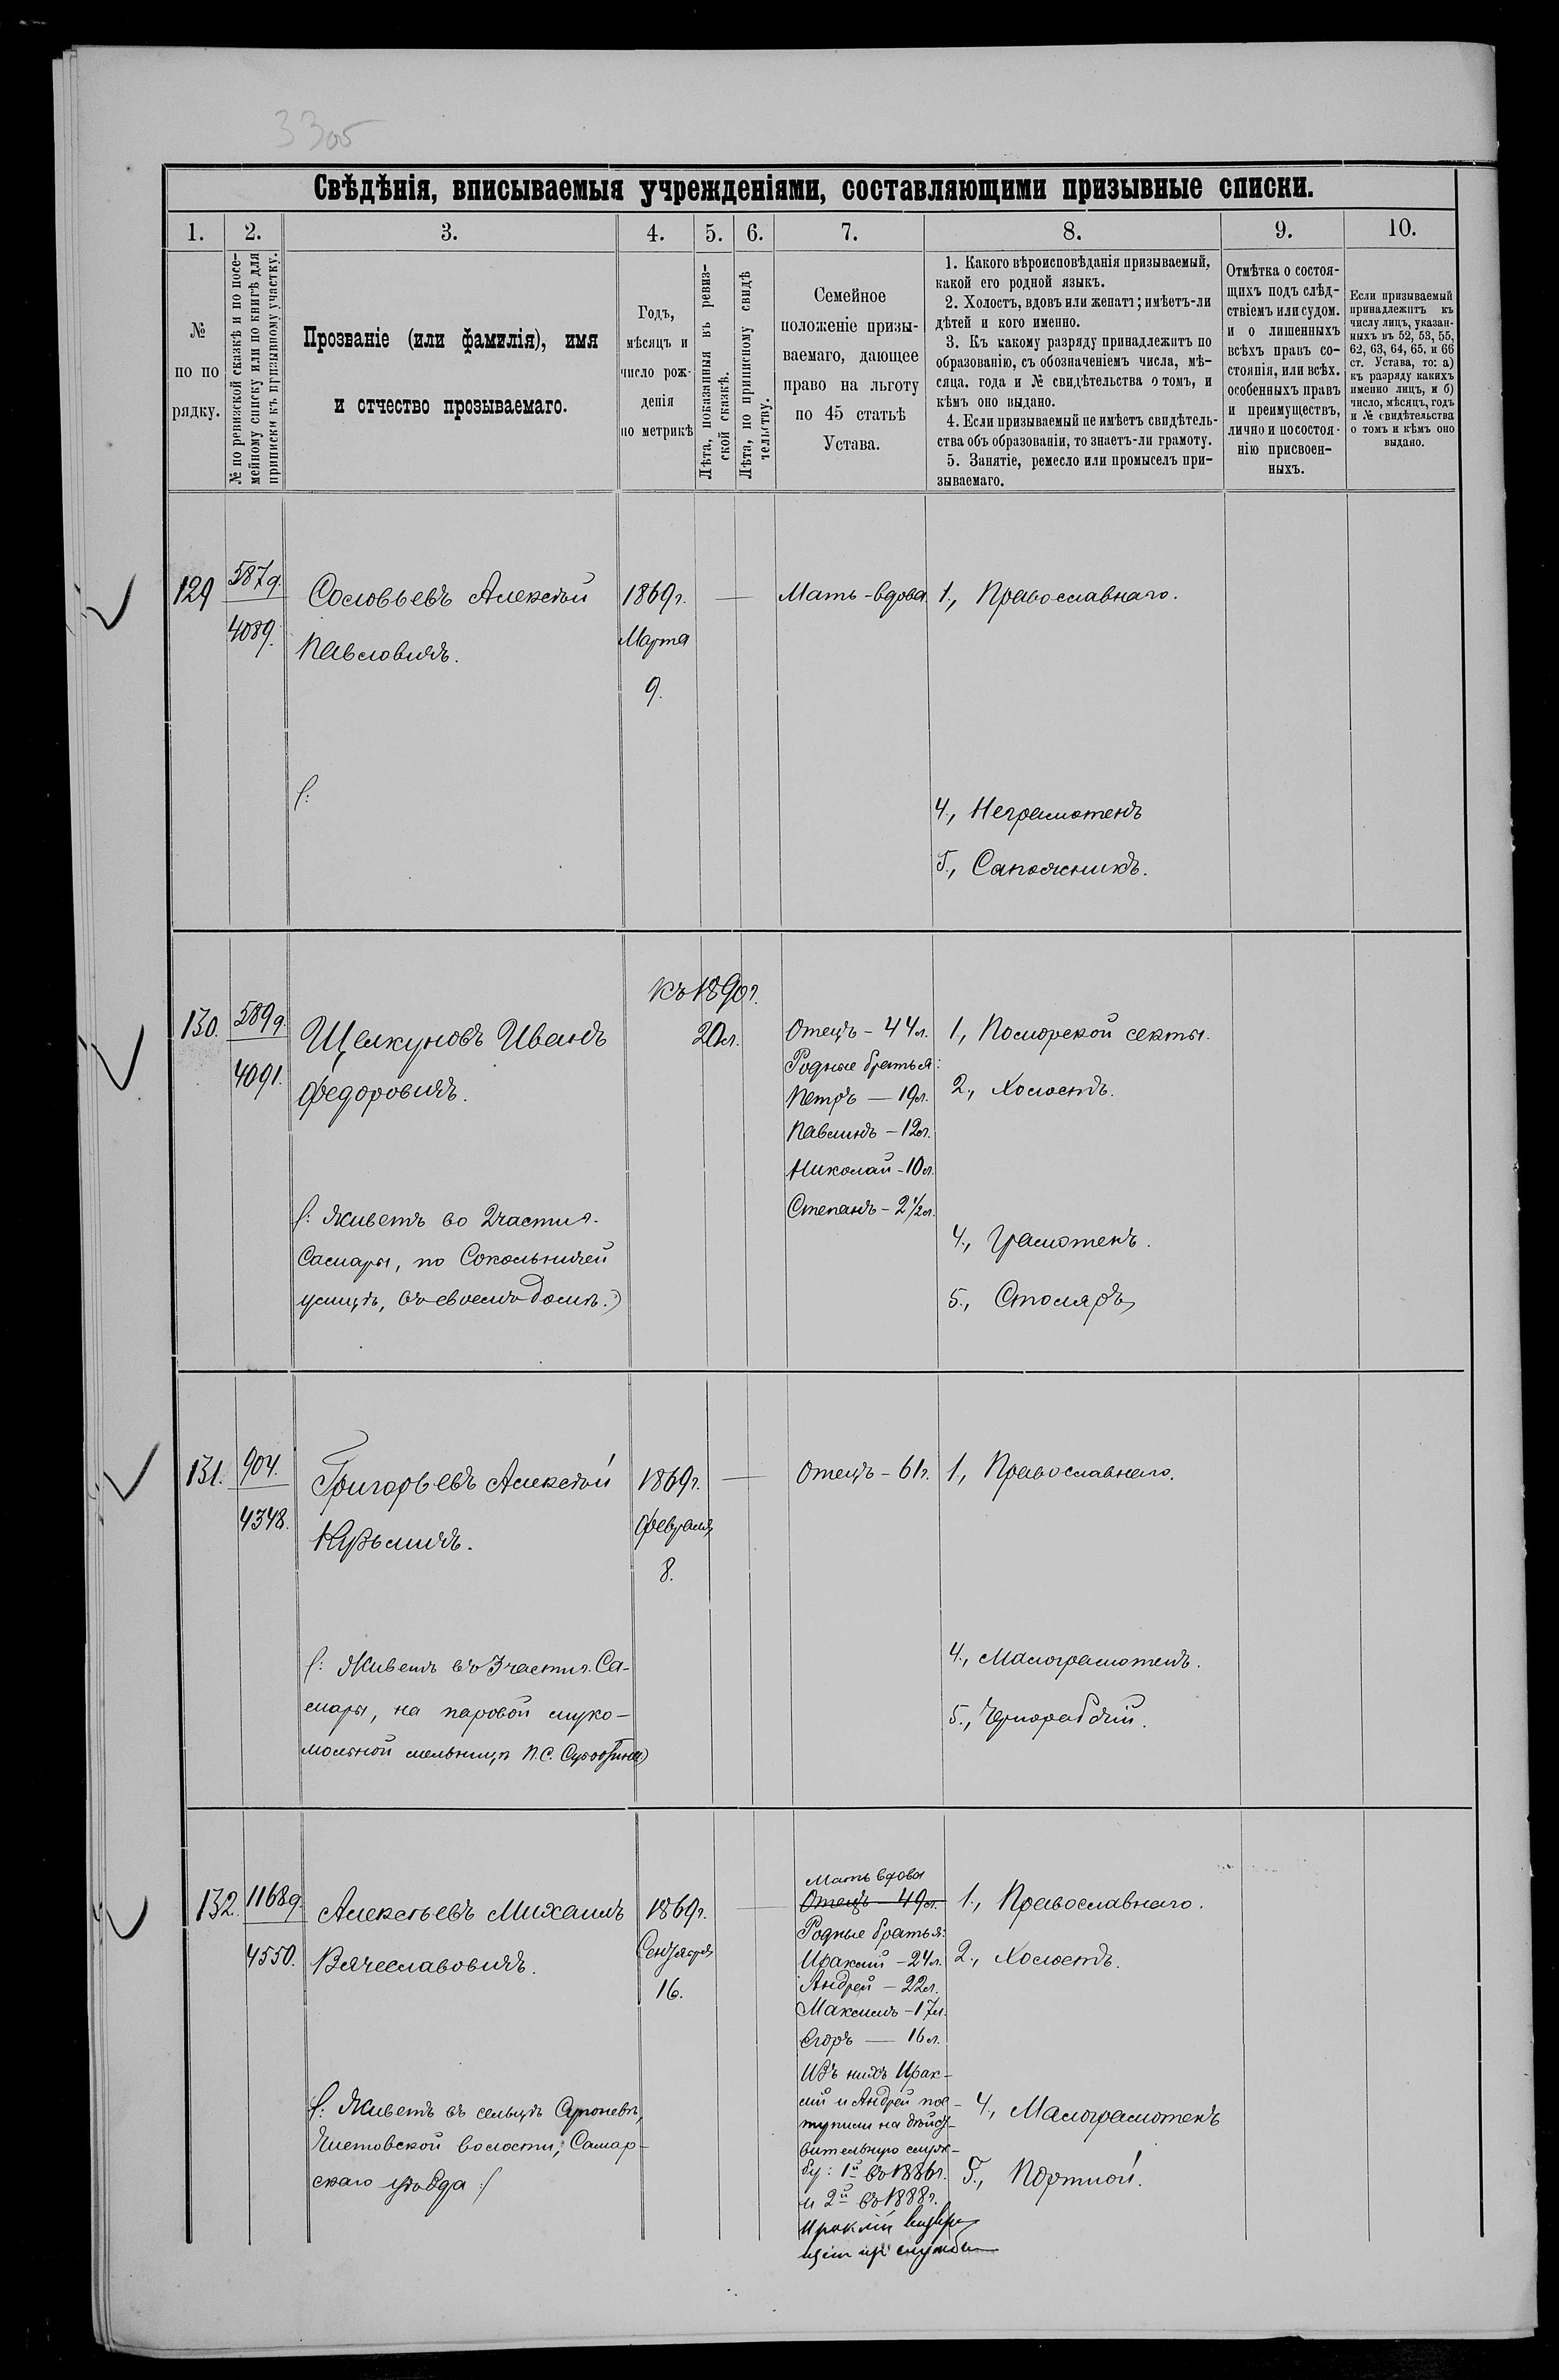 3305
Свѣдѣнія, вписываемыя учрежденіями, составляющими призывные списки.
1. 2. 3. 4. 5. 6. 7. 8. 9. 10.
№
по по
рядку.
№ по ревизской сказкѣ и по посе-
мейному списку или по книгѣ для
приписки къ призывному участку.
Прозваніе (или фамилія), имя
и отчество прозываемаго.
Годъ,
мѣсяцъ и
число рож-
денія
по метрикѣ
Лѣта, показанныя въ ревиз-
ской сказкѣ.
Лѣта, по приписному свидѣ
тельству.
Семейное
положеніе призы-
ваемаго, дающее
право на льготу
по 45 статьѣ
Устава.
1. Какого вѣроисповѣданія призываемый,
какой его родной языкъ.
2. Холостъ, вдовъ или женатъ; имѣетъ-ли
дѣтей и кого именно.
3. Къ какому разряду принадлежитъ по
образованію, съ обозначеніемъ числа, мѣ-
сяца, года и № свидѣтельства о томъ, и
кѣмъ оно выдано.
4. Если призываемый не имѣетъ свидѣтель-
ства объ образованіи, то знаетъ-ли грамоту.
5. Занятіе, ремесло или промыселъ при-
зываемаго.
Отмѣтка о состоя-
щихъ подъ слѣд-
ствіемъ или судом.
и о лишенныхъ
всѣхъ правъ со-
стоянія, или всѣх.
особенныхъ правъ
и преимуществъ,
лично и по состоя-
нію присвоен-
ныхъ.
Если призываемый
принадлежитъ къ
числу лицъ, указан-
ныхъ въ 52, 53, 55,
62, 63, 64, 65, и 66
ст. Устава, то: а)
къ разряду какихъ
именно лицъ, и б)
число, мѣсяцъ, годъ
и № свидѣтельства
о томъ и кѣмъ оно
выдано.
129
587 9.
4089.
Соловьевъ Алексѣй
Павловичъ.
/:
1869 г.
Марта
9.
—
Мать - вдова.
1., Православнаго.
4., Неграмотенъ
5., Сапожникъ.
130.
589 9.
4091.
Щелкуновъ Иванъ
Федоровичъ.
/: Живетъ во 2 части г.
Самары, по Сокольничей
улицѣ, въ своемъ домѣ.)
къ 1890 г.
20 л.
Отецъ - 44 л.
Родные братья:
Петръ — 19 л.
Павлинъ - 12 л.
Николай - 10 л.
Степанъ - 2 1/2 л.
1., Поморской секты.
2., Холостъ.
4., Грамотенъ.
5., Столяръ
131.
904.
4348.
Григорьевъ Алексѣй
Кузьмичъ.
/: Живетъ въ 3 части г. Са-
мары, на паровой муко-
мольной мельницѣ П. С. Субботина)
1869 г.
Февраля
8.
—
Отецъ - 61 г.
1., Православнаго.
4., Малограмотенъ.
5., Чернорабочій.
132.
1168 9.
4550.
Алексѣевъ Михаилъ
Вячеславовичъ.
/: Живетъ въ сельцѣ Супоневѣ,
волости, Самар-
скаго уѣзда :/
1869 г.
Сентября
16.
—
Мать вдова
Отецъ — 49 л.
Родные братья:
Ираклій - 24 л.
Андрей — 22 л.
Максимъ - 17 л.
Егоръ — 16 л.
Изъ нихъ Ирак-
лій и Андрей пос-
тупили на дѣйст-
вительную служ-
бу: 1й въ 1886 г.
и 2й въ 1888 г.
Ираклій
службы
1., Православнаго.
2., Холостъ.
4., Малограмотенъ
5., Портной.